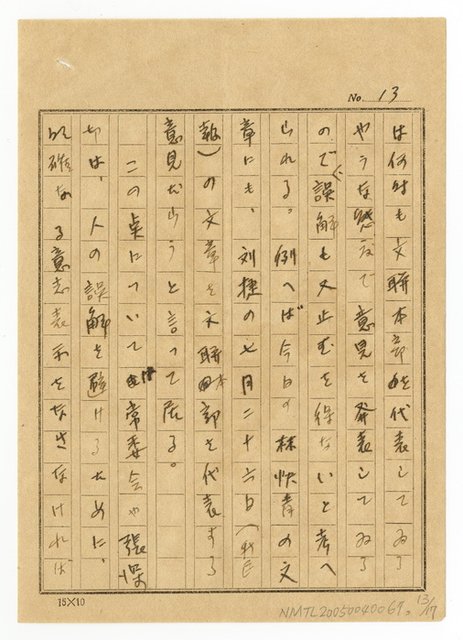 No. 13
は何時も文聯本部を代表してゐる
やうな態度で意見を発表してゐる
ので誤解も又止むを得ないと考へ
られる。例へば今日の林快青の文
章にも、刘捷の七月二十六日(新民
報)の文章を文聯本部を代表する
意見だらうと言って居る。
この点について常委会や張深
切は、人の誤解を避けるために、
的確なる意志表示をなさなければ
15×10
NMTL20050040069. 13/17